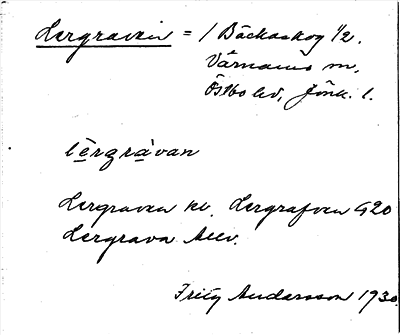 Lergraven = / Bäckaskog 1/2.
Värnamo m,
Östbo hd, Jönk. l.
lèrgràvan
Lergraven kv. Lergrafven G20
Lergrava Allv.
Fritz Andersson 1930.